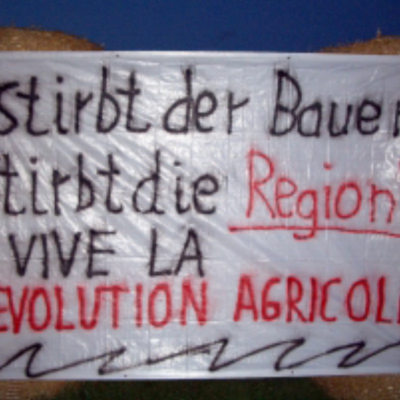 stirbt der Bauer
tirbt die Region
VIVE LA
EVOLUTION AGRICOL